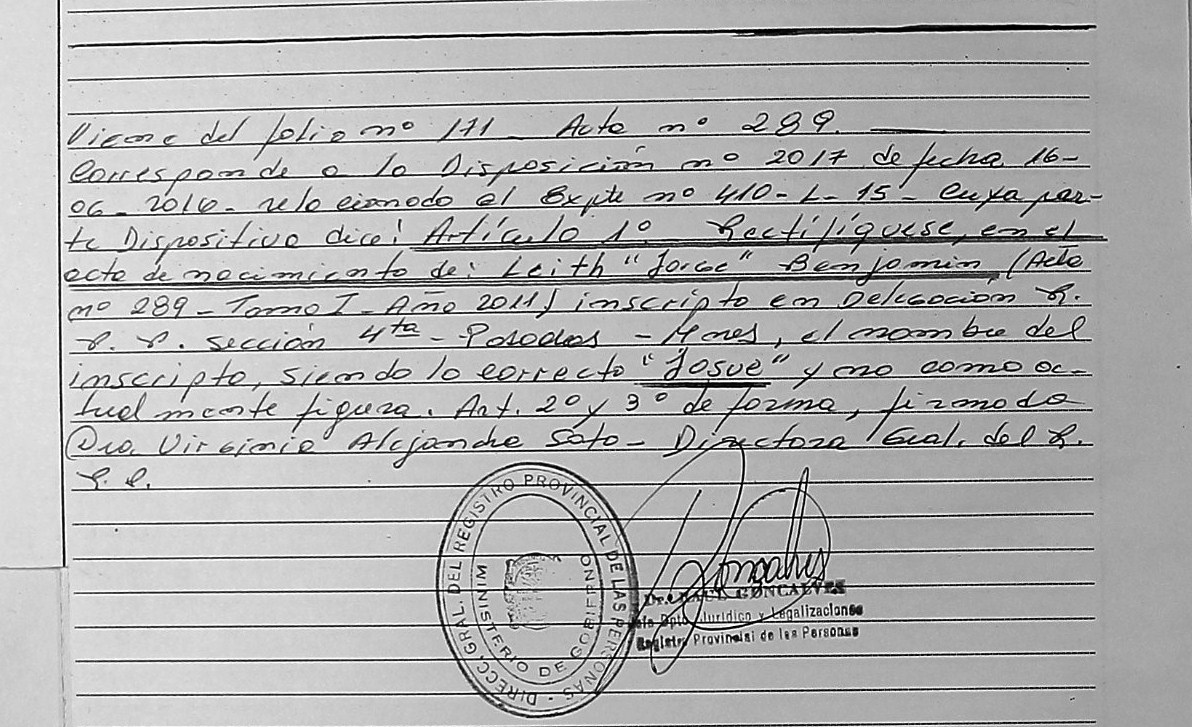 Viene del folio nº 171 - Acta nº 289.
Corresponde a la Disposición nº 2017 de fecha 16-
06-2016- relacionado al Expte nº 410-L-15- cuya par-
te Dispositiva dice: Artículo 1º Rectifíquese, en el
acta de nacimiento de: Leith "Jorge" Benjamin (Acta
nº 289 - Tomo I - Año 2011) inscripto en Delegación R.
P. P. sección 4ta - Posadas - Mnes, el nombre del
inscripto, siendo lo correcto "Josue" y no como ac-
tualmente figura. Art. 2º y 3º de forma, firmado
Dra. Virginia Alejandra Soto - Directora Gral. del R.
P. P.
DIRECC. GRAL. DEL REGISTRO PROVINCIAL DE LAS PERSONAS -
MINISTERIO DE GOBIERNO
Goncalves
Dr. RAUL GONCALVES
Jefe Dpto Jurídico y Legalizaciones
Registro Provincial de las Personas